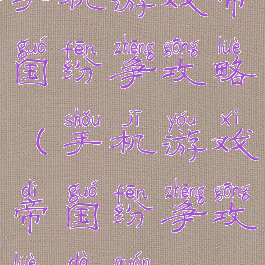 guó fēn zhēng gōng lüè
国纷争攻略
shǒu jī yóu xì
（手机游戏
dì guó fēn zhēng gōng
帝国纷争攻
lüè dà quán